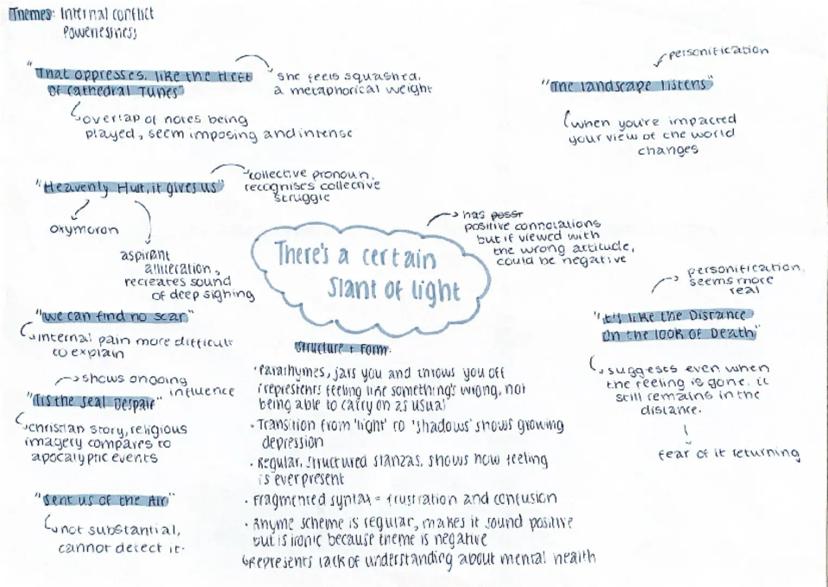 Themes: Internal conflict
Powerlessness
"That oppresses, like the Heft
Of Cathedral Tunes"
she feels squashed,
a metaphorical weight
overlap of notes being
played, seem imposing and intense
personification
"The landscape listens"
when you're impacted
your view of the world
changes
"Heavenly Hurt, it gives us"
collective pronoun,
recognises collective
struggle
oxymoron
aspirant
alliteration,
recreates sound
of deep sighing
There's a certain
slant of light
has
positive connotations
but if viewed with
the wrong attitude,
could be negative
"we can find no scar"
internal pain more difficult
to explain
personification,
seems more
real
"it's like the Distance
On the look of Death"
suggests even when
the feeling is gone, it
still remains in the
distance.
fear of it returning
shows ongoing
influence
"'Tis the Seal Despair"
christian story, religious
imagery compares to
apocalyptic events
"Sent us of the Air"
not substantial,
cannot detect it.
Structure + Form:
• Pararhymes, jars you and throws you off
(represents feeling like something's wrong, not
being able to carry on as usual
• Transition from 'light' to 'shadows' shows growing
depression
• Regular, structured stanzas, shows how feeling
is ever present
• Fragmented syntax = frustration and confusion
• Rhyme scheme is regular, makes it sound positive
but is ironic because theme is negative
Represents lack of understanding about mental health